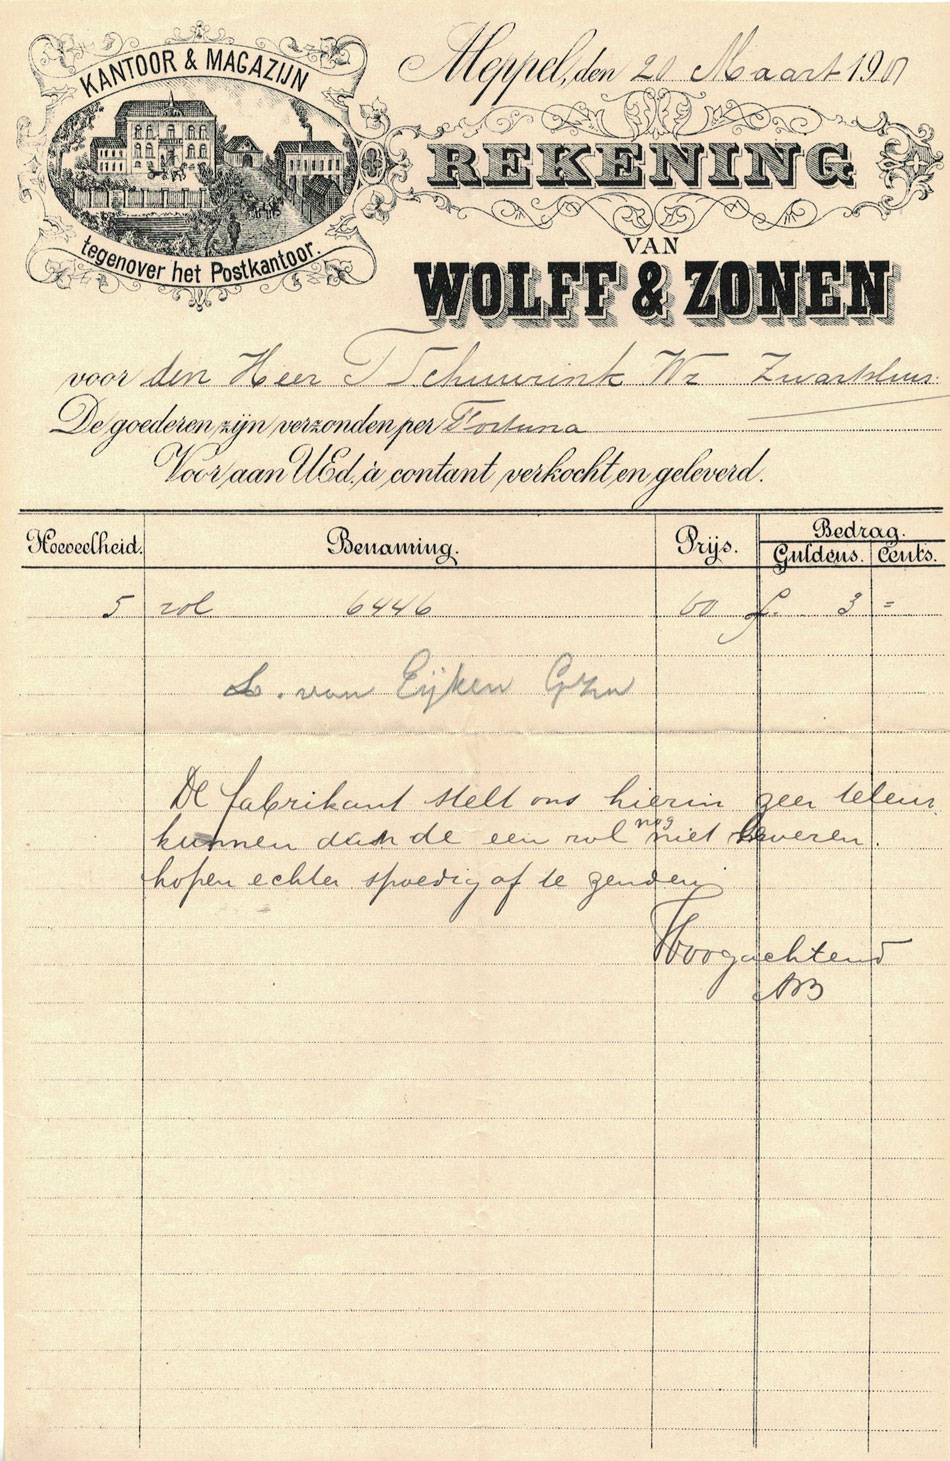 KANTOOR & MAGAZIJN
tegenover het Postkantoor.
Meppel, den 20 Maart 1901
REKENING
VAN
WOLFF & ZONEN
voor den Heer T Schuurink Wz Zwartsluis
De goederen zijn verzonden per Fortuna
Voor aan UEd. à contant verkocht en geleverd.
Hoeveelheid. Benaming. Prijs. Bedrag.
Guldens. Cents.
5 rol 6446 60 f. 3 =
L. van Eijken Gzn
De fabrikant stelt ons hierin zeer teleur
kunnen dan de een rol nog niet leveren.
hopen echter spoedig af te zenden
Hoogachtend